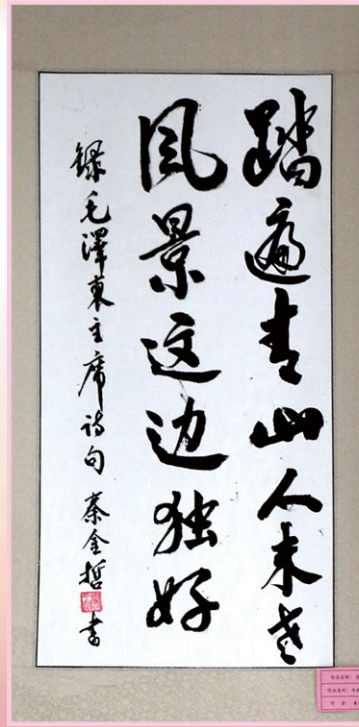 踏遍青山人未老
风景这边独好
録毛澤東主席诗句 秦金哲书